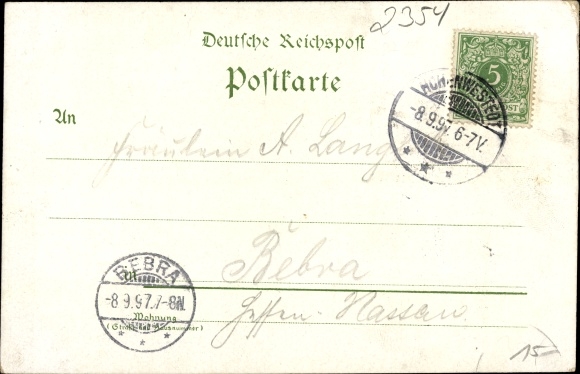 2354
Deutsche Reichspost
Postkarte
5
HOHENWESTEDT
-8.9.97. 6-7V.
An
Fräulein A. Lang
Bebra
in
BEBRA
-8.9.97.7-8N.
Hessen-Nassau
Wohnung
(Straße und Hausnummer)
15-